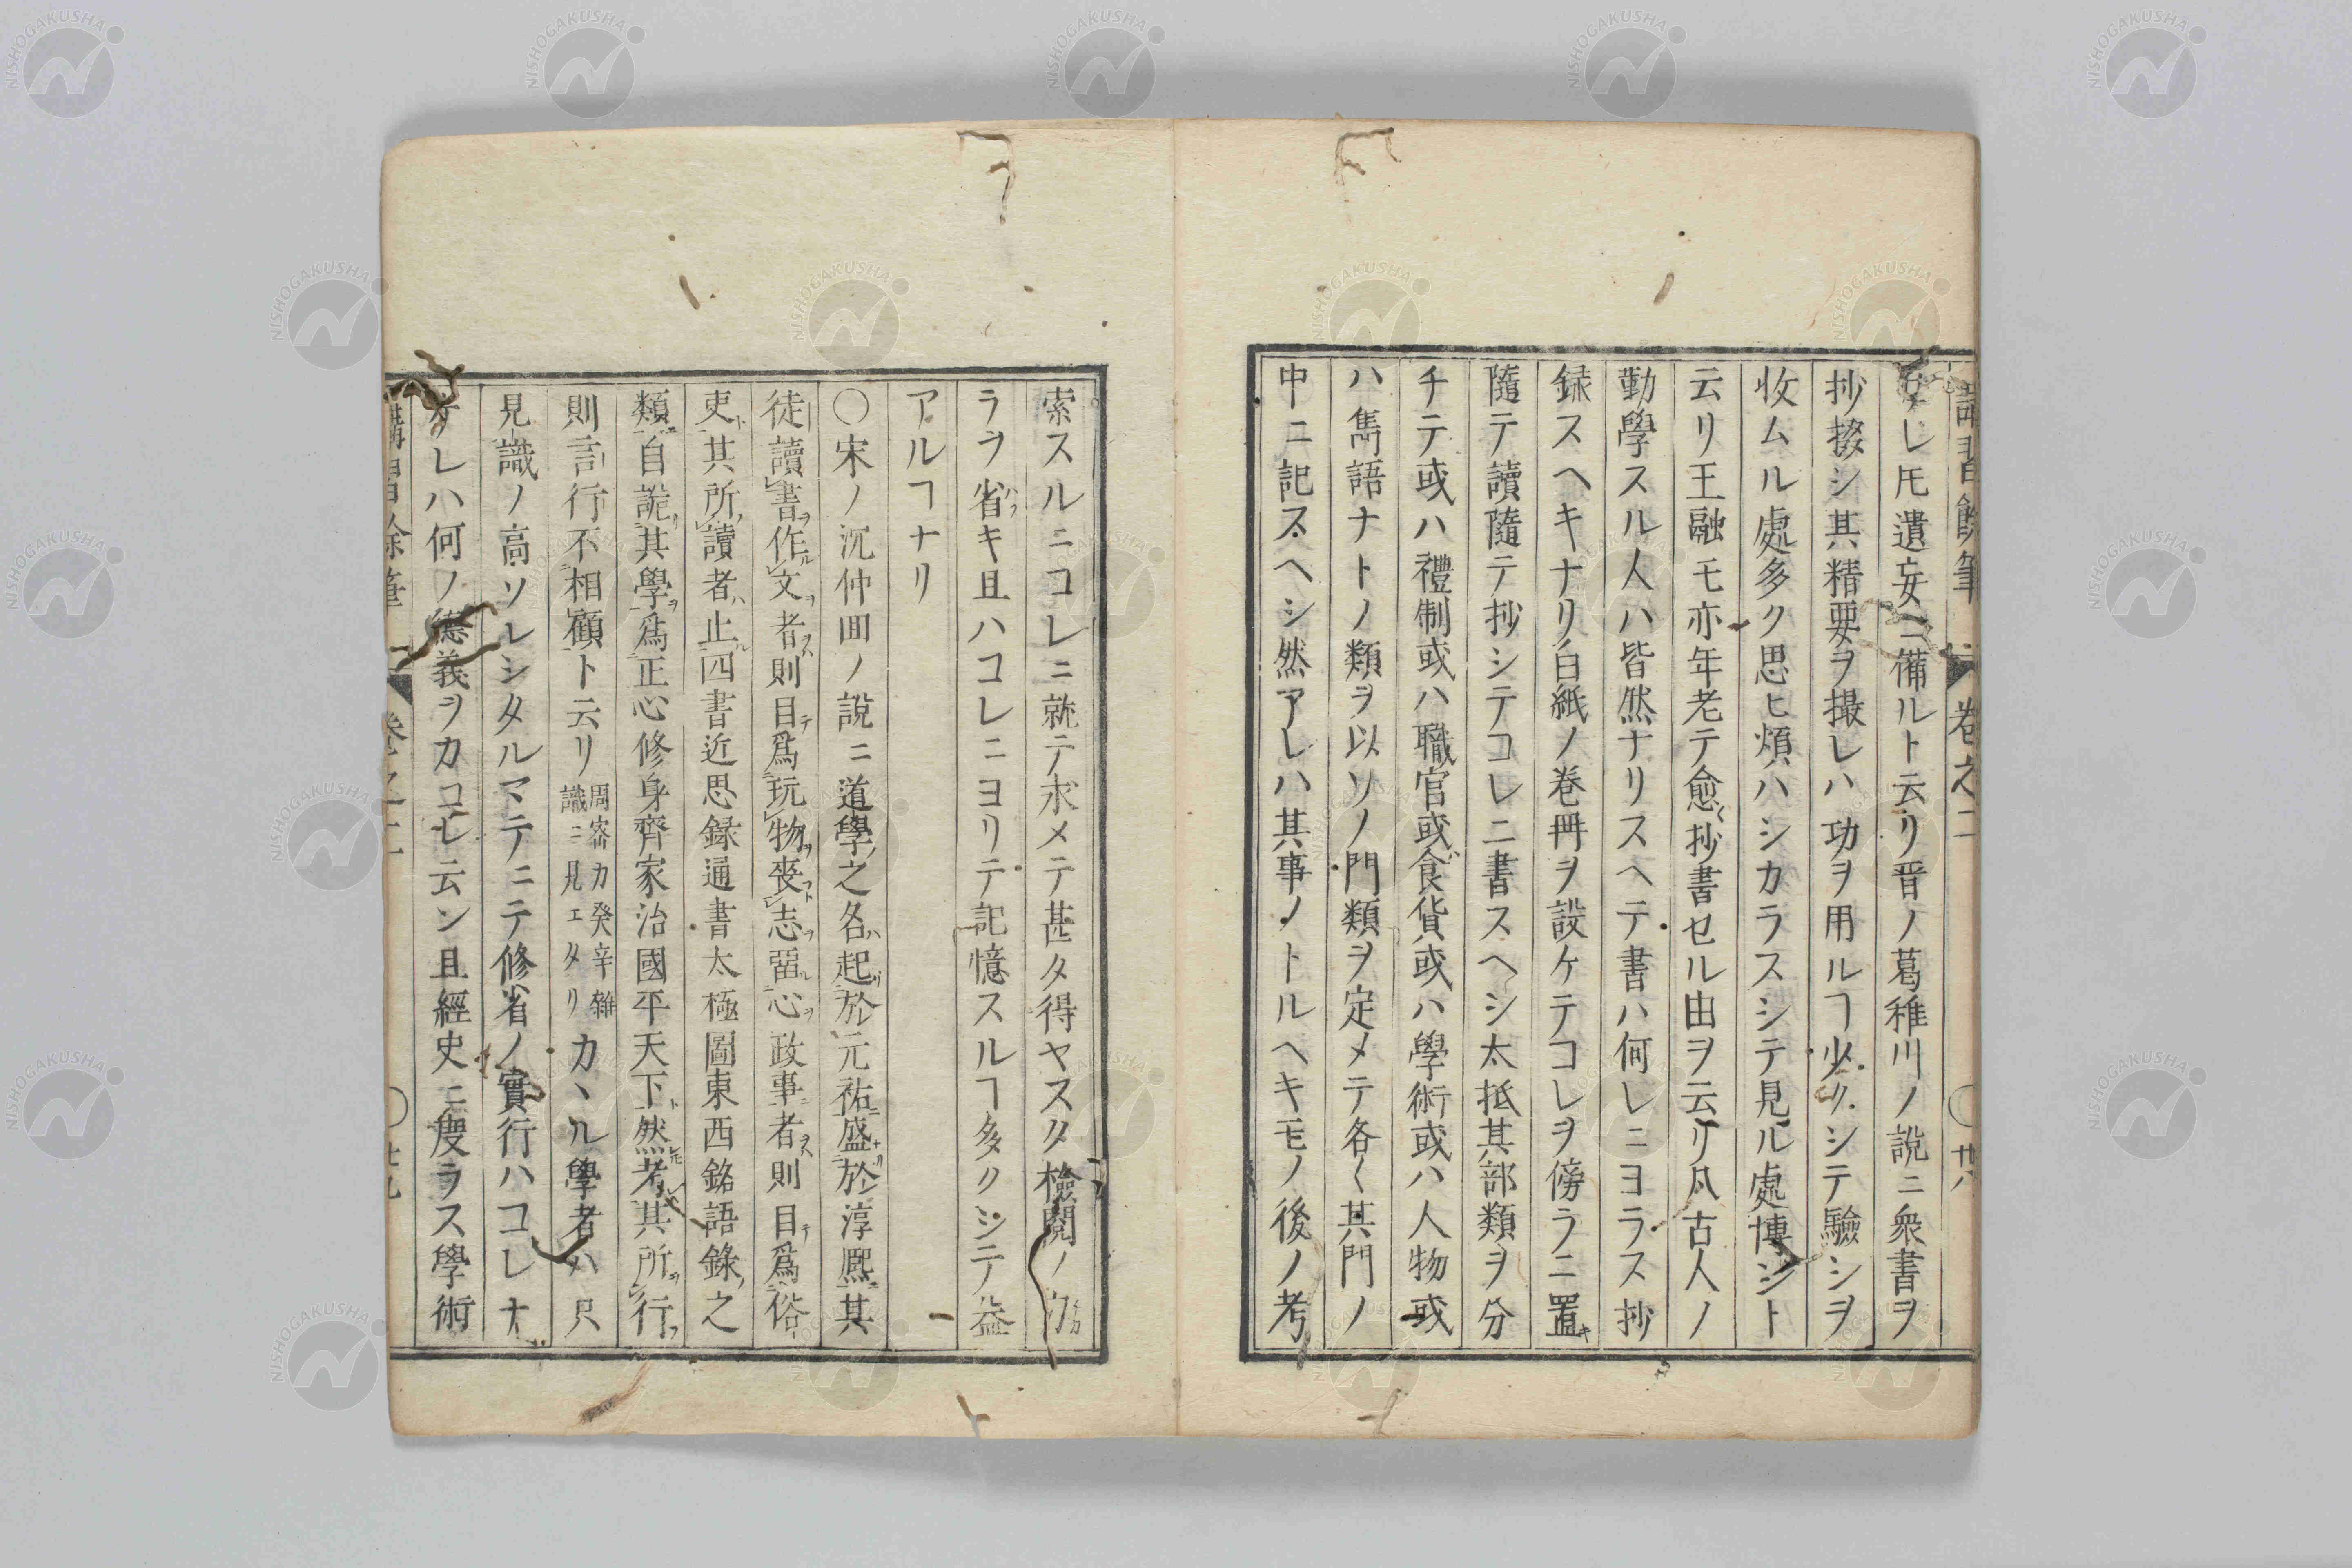 講習餘筆 卷之二 〇廿八
レ𪜈遺妄ニ備ルト云リ晋ノ葛稚川ノ說ニ衆書ヲ
抄掇シ其精要ヲ撮レハ功ヲ用ルヿ少クシテ驗シヲ
收ムル處多ク思ヒ煩ハシカラスシテ見ル處博シト
云リ王融モ亦年老テ愈〻抄書セル由ヲ云リ凡古人ノ
勤學スル人ハ皆然ナリスヘテ書ハ何レニヨラス抄
録スヘキナリ白紙ノ卷冊ヲ設ケテコレヲ傍ラニ置キ
隨テ讀隨テ抄シテコレニ書スヘシ太抵其部類ヲ分
チテ或ハ禮制或ハ職官或食貨或ハ學術或ハ人物或
ハ雋語ナトノ類ヲ以ソノ門類ヲ定メテ各〱其門ノ
中ニ記スヘシ然アレハ其事ノトルヘキモノ後ノ考
索スルニコレニ就テ求メテ甚タ得ヤスタ檢閱ノ
ラヲ省ハフキ且ハコレニヨリテ記憶スルヿ多クシテ益
アルヿナリ
〇宋ノ沉仲固ノ說ニ道學ノ之名ハ起リ於元祐ニ盛ナリ於淳熈ニ其
徒讀書ヲ作ル文ヲ者ヲハ則目テ爲玩物ヲ喪フト志ヲ畱ル心ヲ政事ニ者ヲハ則目テ爲俗
吏ト其所ノ讀者ハ止ル四書近思録通書太極圖東西銘語錄ノ之
類ニ自詭リ其學ヲ爲ニ正心修身齊家治國平天下ト然レ𪜈考レハ其所ヲ行フ
則言行不相顧ト云リ周密カ癸辛雜識ニ見エタリカヽル學者ハ只
見識ノ高ソレシタルマテニテ修省ノ實行ハコレナ
ケレハ何ノ德義ヲカコレ云ン且經史ニ度ラス學術
講習餘筆 卷之二 〇廿九
NISHOGAKUSHA